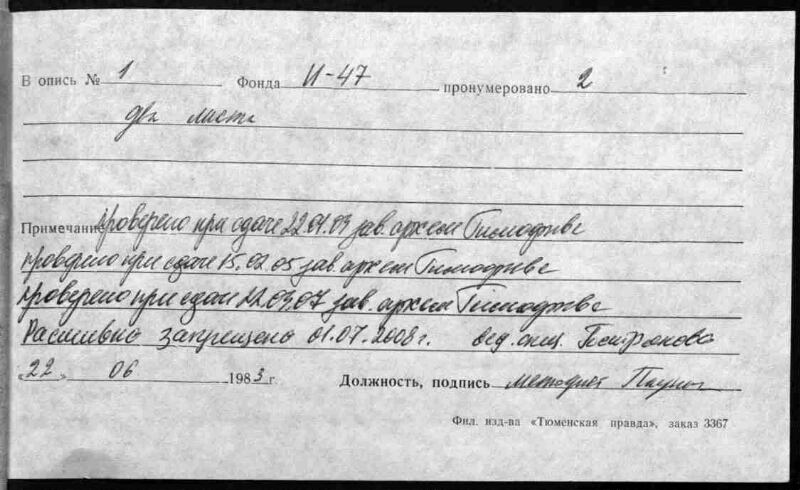 В опись № 1 Фонда И-47 пронумеровано 2
два листа
Примечание проверено при сдаче 22.01.03 зав. архвом Тимофеева
проверено при сдаче 15.02.05 зав. архвом Тимофеева
проверено при сдаче 22.03.07 зав. архвом Тимофеева
запрещено 01.07.2008 г. вед. спец.
„22" 06 1983 г. Должность, подпись методист
Фил. изд-ва «Тюменская правда», заказ 3367